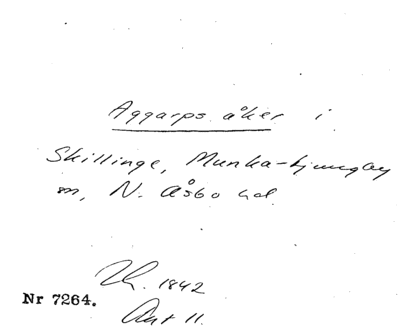 Aggarps åker i
Skillinge, Munka-Ljungby
sn, N. Åsbo hd.
Lh. 1842
Nr 7264.
Akt 11.